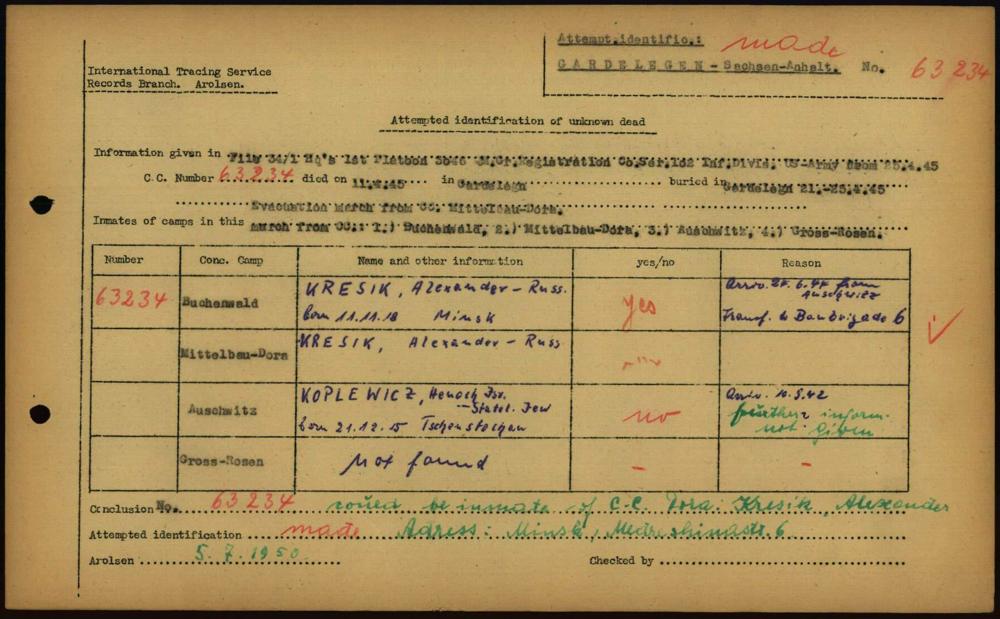 Attempt.identific.: made
GARDELEGEN - Sachsen-Anhalt. No. 63 234
International Tracing Service
Records Branch. Arolsen.
Attempted identification of unknown dead
Information given in File 34/1 Hq's 1st Platoon 3046 QM.Gr.Registration Co.Ser.102 Inf.Divis. US-Army from 25.4.45
C.C. Number 63234 died on 11.4.45 in Gardelegn buried in Gardelegn 21.-25.4.45
Evacuation march from CC. Mittelbau-Dora.
Inmates of camps in this march from CC.: 1.) Buchenwald, 2.) Mittelbau-Dora, 3.) Auschwitz, 4.) Gross-Rosen.
Number Conc. Camp Name and other information yes/no Reason
63234 Buchenwald KRESIK, Alexander - Russ. born 11.11.18 Minsk yes Arriv. 6.44 from Auschwitz Transf. to Baubrigade 6 ✓
Mittelbau-Dora KRESIK, Alexander - Russ
Auschwitz KOPLEWICZ, Henoch Isr. - Statel. Jew born 21.12.15 Tschenstochau no Arriv. 10.5.42 further inform. not given
Gross-Rosen Not found - -
Conclusion No. 63234 could be inmate of C.C. Dora: Kresik, Alexander
Attempted identification made Adress: Minsk, 6
Arolsen 5.7.1950. Checked by